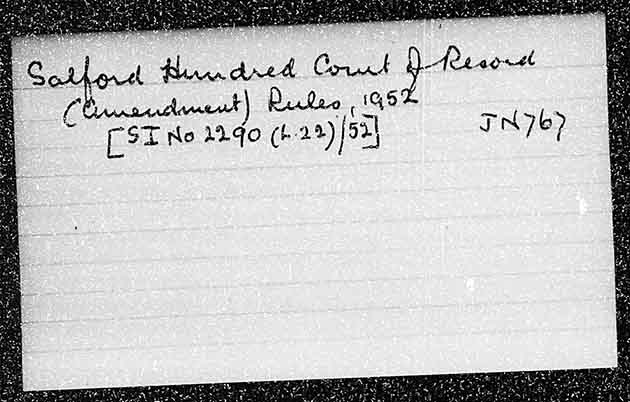 Salford Hundred Court of Record
(Amendment) Rules, 1952
[SI No 2290 (L.22)/52] JN767